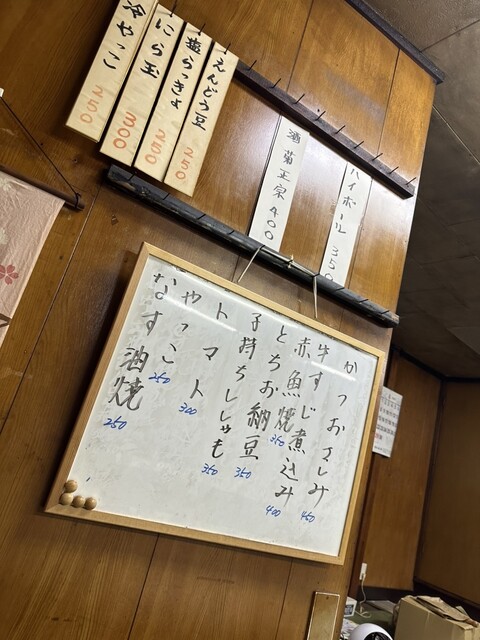 ハイボール 350
酒 菊正宗 400
えんどう豆 250
塩らっきょ 250
にら玉 300
冷やっこ 250
かつおさしみ 450
牛すじ煮込み 400
赤魚焼 350
とちお納豆 350
子持ちししゃも 350
トマト 300
やっこ 250
なす油焼 250